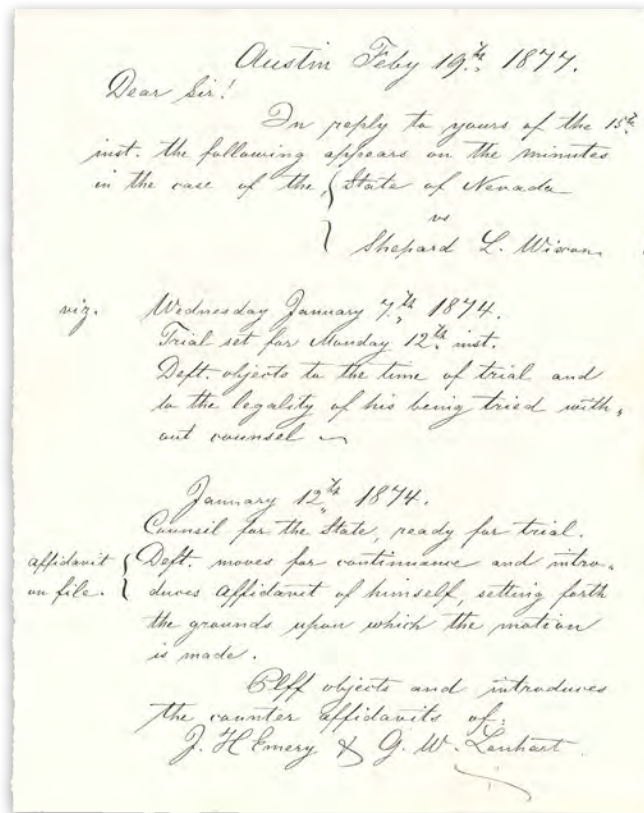 Austin Feby 19th 1877.
Dear Sir!
In reply to yours of the 15th
inst. the following appears on the minutes
in the case of the, { State of Nevada
vs
Shepard L. Wixon.
viz. Wednesday January 7th 1874.
Trial set for Monday 12th inst.
Deft. objects to the time of trial and
to the legality of his being tried with,
out counsel
January 12th 1874.
Council for the State, ready for trial.
affidavit { Deft. moves for continuance and intro,
on file. duces affidavit of himself, setting forth
the grounds upon which the motion
is made.
Plff objects and introduces
the counter affidavits of:
J. H Emery & G. W. Lenhart